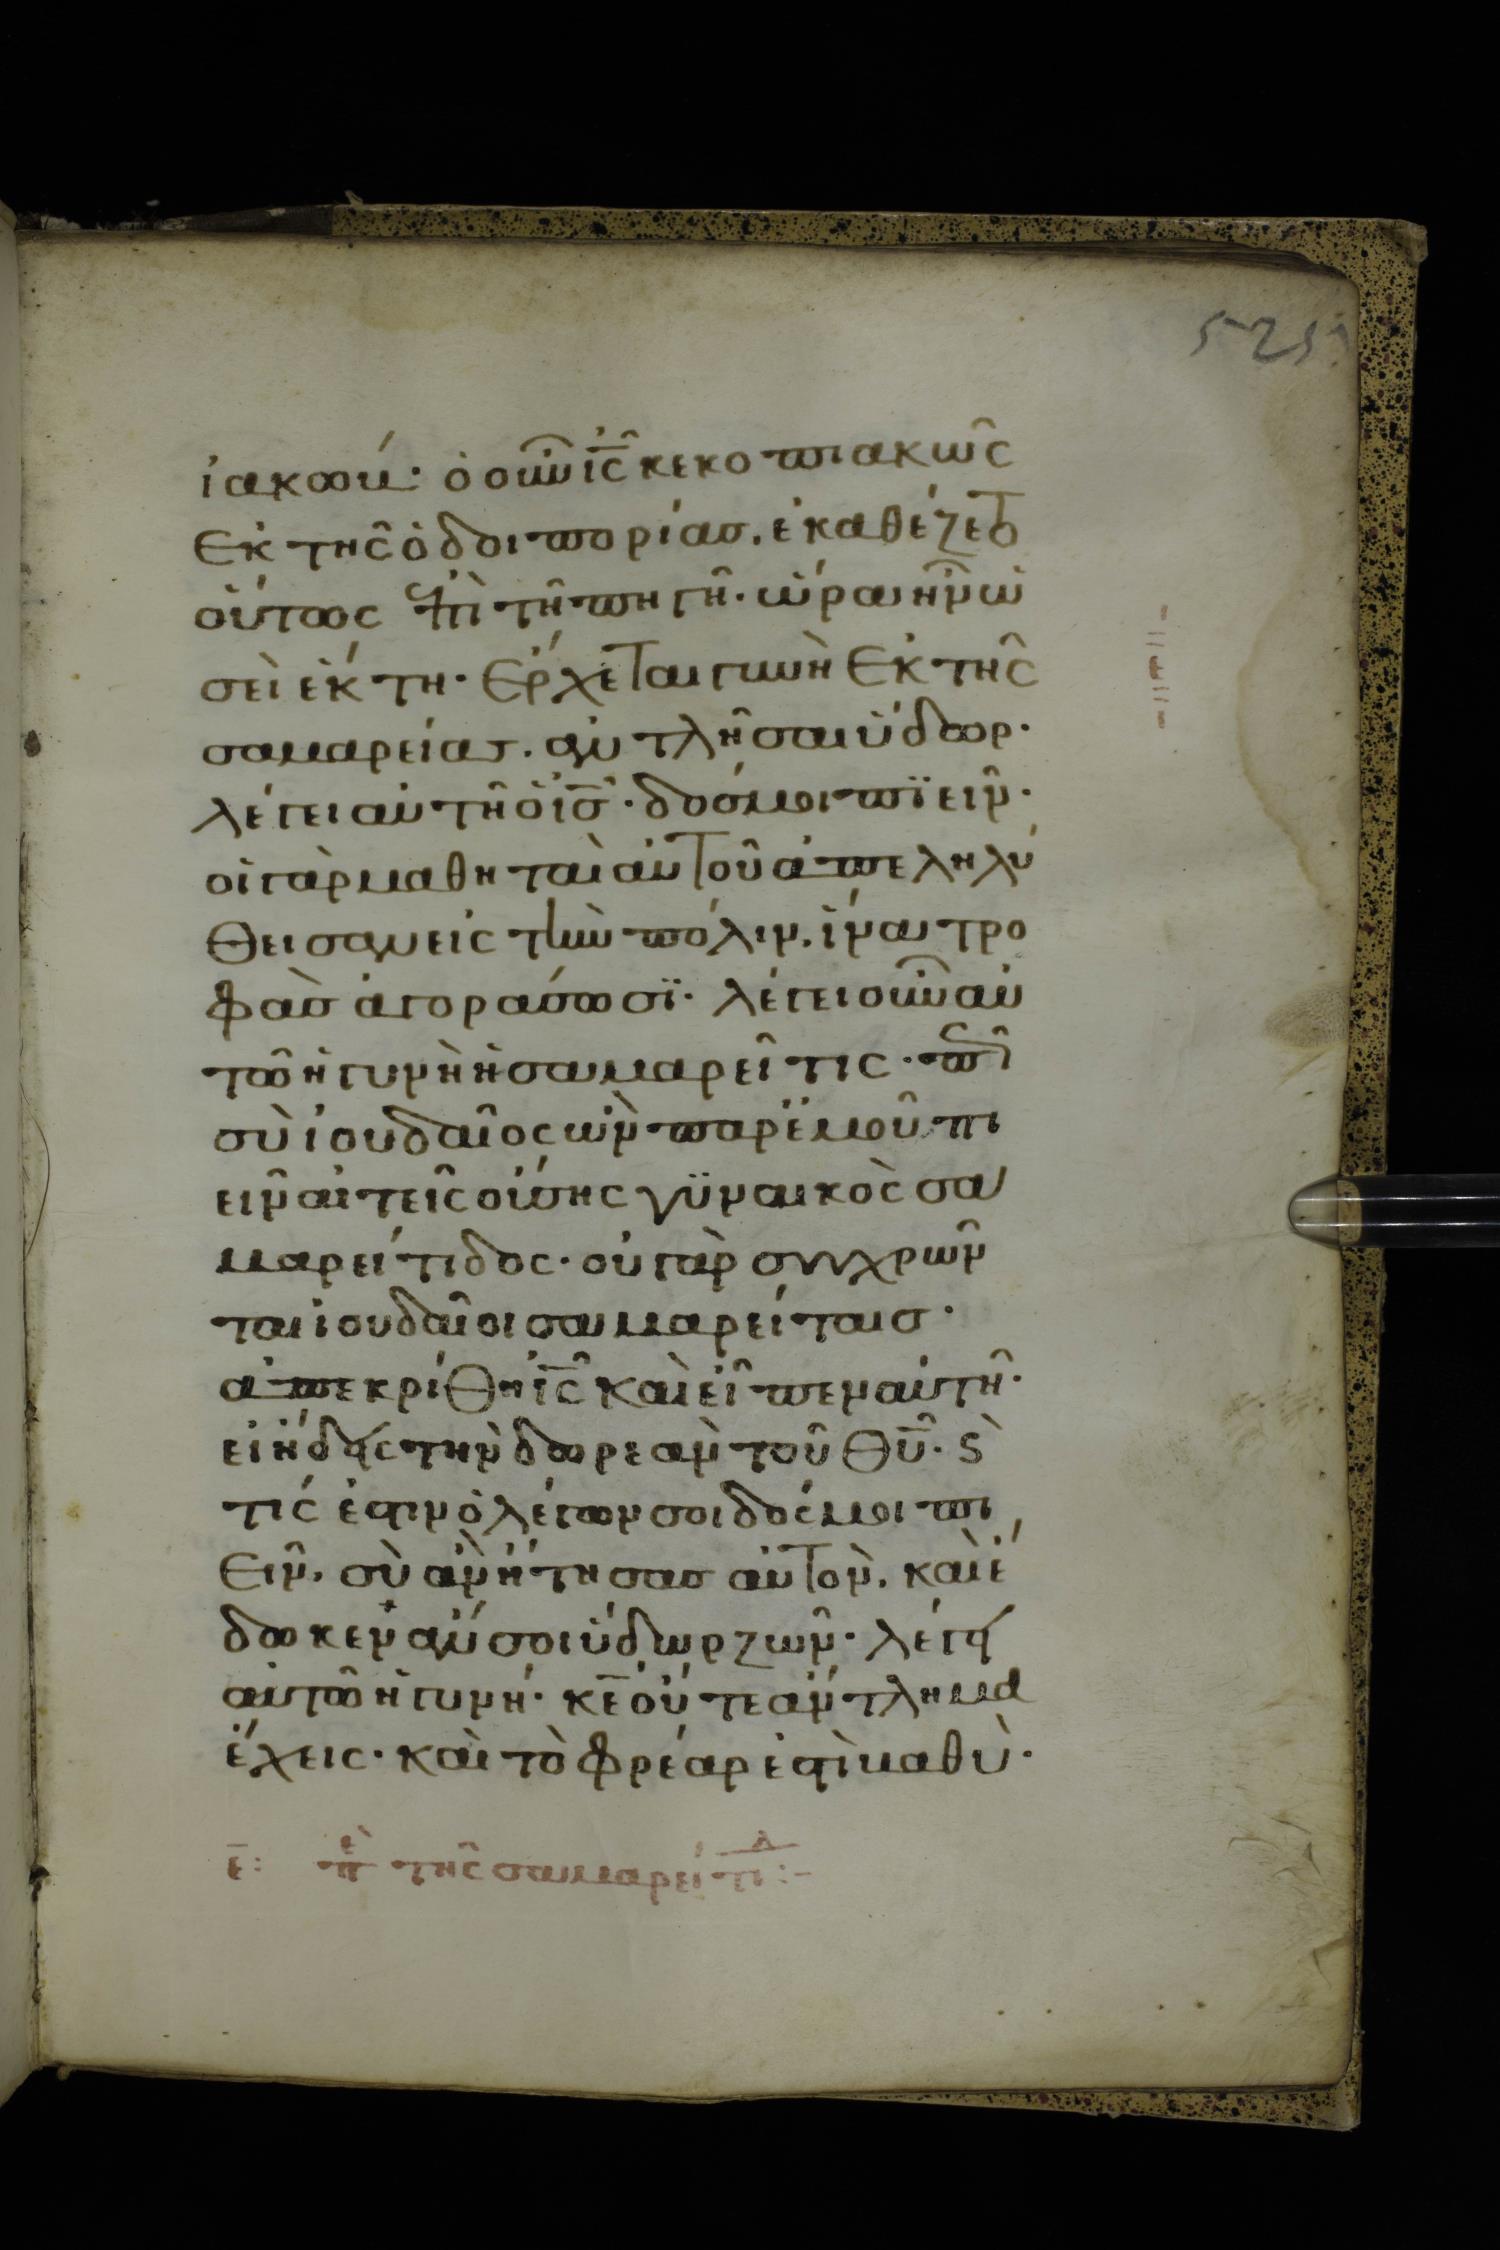 525
ἰακώβ· ὁ οὖν ἰς̅ κεκοπιακὼς
ἐκ τῆς ὁδοιπορίας. ἐκαθέζετο
οὕτως ἐπὶ τῆ πηγῆ· ὥρα ἦν ὡ
σεὶ ἕκτη· ἔρχεται γυνὴ ἐκ τῆς
σαμαρείας. ἀντλῆσαι ὕδωρ·
λέγει αὐτῆ ὁ ἰς̅· δός μοι πϊεῖν·
οἱ γὰρ μαθηταὶ αὐτοῦ ἀπεληλύ
θεισαν εἰς τὴν πόλιν. ἵνα τρο
φὰς ἀγοράσωσϊ· λέγει οὖν αὐ
τῶ ἡ γυνὴ ἡ σαμαρεῖτις· πῶς
σὺ ἰουδαῖος ὢν παρ' ἐμοῦ πι
εῖν αἰτεῖς οὔσης γϋναικὸς σα
μαρείτιδος· οὐ γὰρ συγχρῶν
ται ἰουδαῖοι σαμαρείταις·
ἀπεκρίθη ἰς̅ καὶ εἶπεν αὐτῆ·
εἰ ἤδεις τὴν δωρεὰν τοῦ θυ̅· ϗ
τίς ἐστιν ὁ λέγων σοι δός μοι πι
εῖν. σὺ ἂν ἤτησας αὐτὸν. καὶ ἔ
δωκεν ἄν σοι ὕδωρ ζῶν· λέγει
αὐτῶ ἡ γυνή· κε̅ οὔτε ἄντλημα
ἔχεις· καὶ τὸ φρέαρ ἐστὶ βαθὺ·
ε̅: πε τῆς σαμαρείτιδ:-